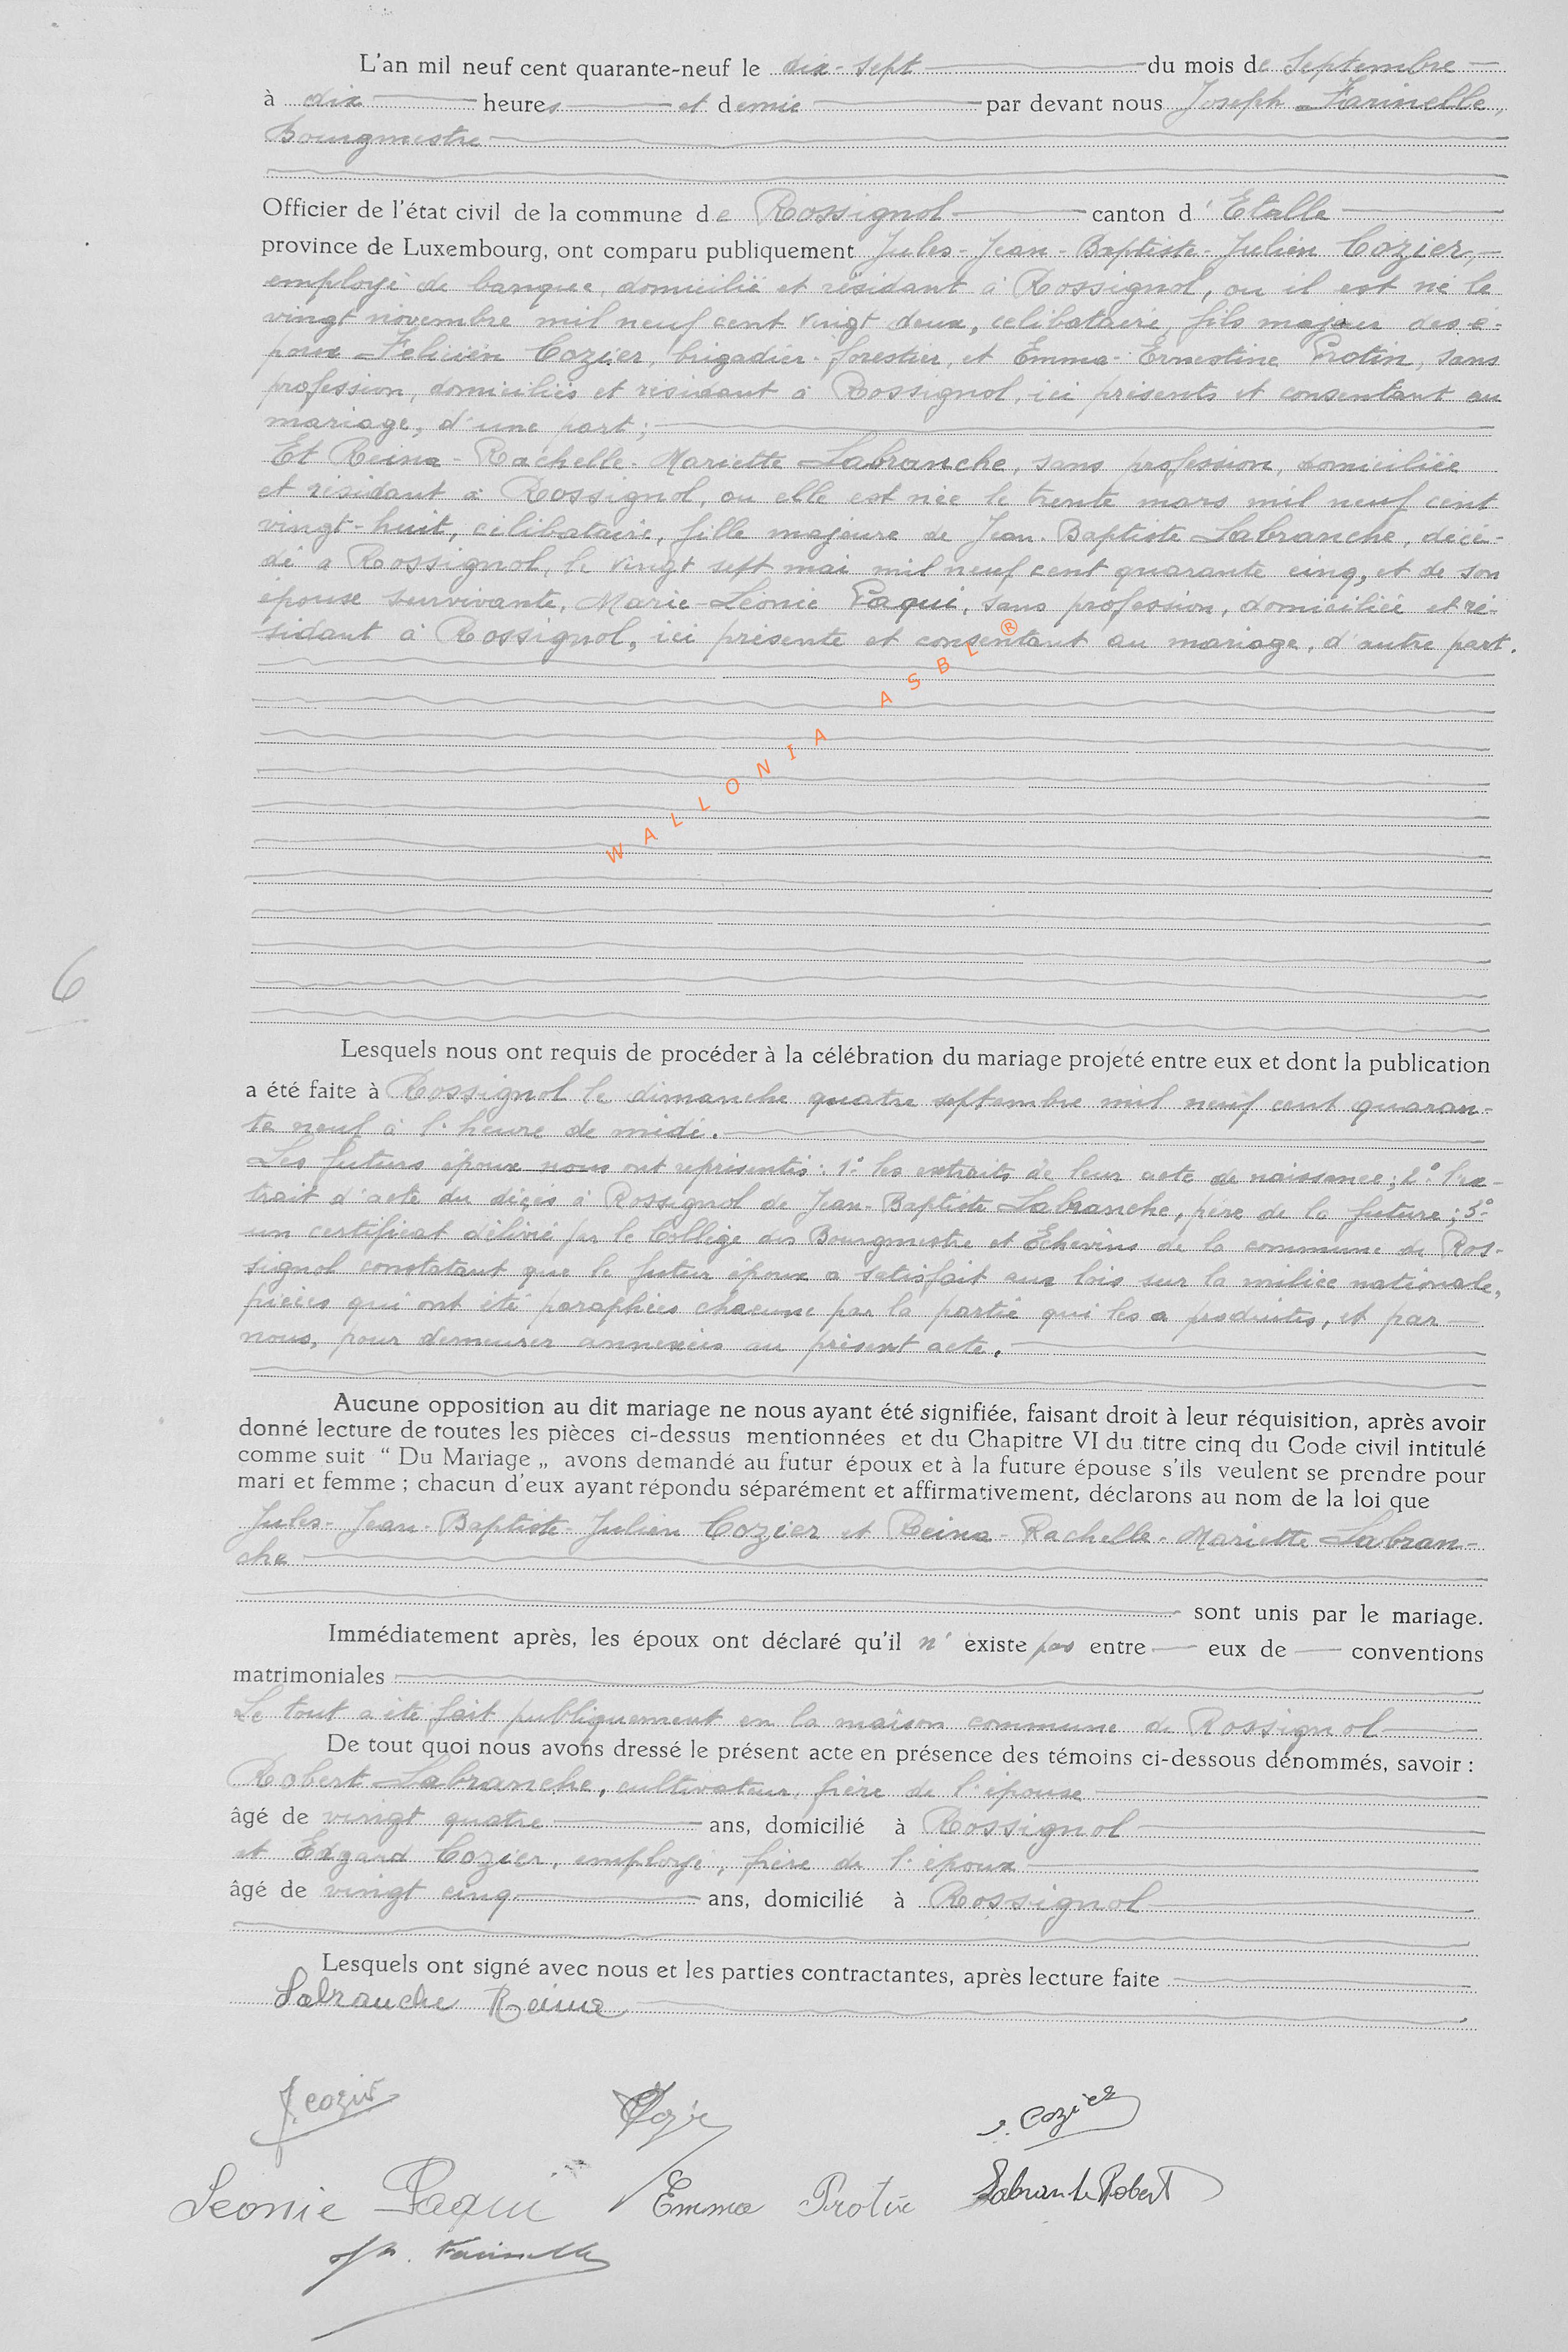 L'an mil neuf cent quarante-neuf le dix-sept du mois de Septembre
à dix heures et demie par devant nous Joseph Farinelle,
Bourgmestre
Officier de l'état civil de la commune de Rossignol canton d'Etalle
province de Luxembourg, ont comparu publiquement Jules-Jean-Baptiste-Julien Cozier,
employé de banque, domicilié et résidant à Rossignol, ou il est né le
vingt novembre mil neuf cent vingt deux, célibataire, fils majeur des é-
poux Félicien Cozier, brigadier-forestier, et Emma-Ernestine Protin, sans
profession, domiciliés et résidant à Rossignol, ici présents et consentant au
mariage, d'une part;
Et Reina-Rachelle-Mariette Labranche, sans profession, domiciliée
et résidant à Rossignol, ou elle est née le trente mars mil neuf cent
vingt-huit, célibataire, fille majeure de Jean-Baptiste Labranche, décé-
dé à Rossignol, le vingt sept mai mil neuf cent quarante cinq, et de son
épouse survivante, Marie-Léonie Paqui, sans profession, domiciliée et ré-
sidant à Rossignol, ici présente et consentant au mariage, d'autre part.
WALLONIA ASBL ®
6
Lesquels nous ont requis de procéder à la célébration du mariage projeté entre eux et dont la publication
a été faite à Rossignol le dimanche quatre septembre mil neuf cent quaran-
te neuf à l'heure de midi.
Les futurs époux nous ont représentés : 1° les extraits de leur acte de naissance; 2° l'ex-
trait d'acte du décès à Rossignol de Jean-Baptiste Labranche, père de la future; 3°
un certificat délivré par le Collège des Bourgmestre et Echevins de la commune de Ros-
signol constatant que le futur époux a satisfait aux lois sur la milice nationale,
pièces qui ont été paraphées chacune par la partie qui les a produites, et par
nous, pour demeurer annexées au présent acte.
Aucune opposition au dit mariage ne nous ayant été signifiée, faisant droit à leur réquisition, après avoir
donné lecture de toutes les pièces ci-dessus mentionnées et du Chapitre VI du titre cinq du Code civil intitulé
comme suit “ Du Mariage „ avons demandé au futur époux et à la future épouse s'ils veulent se prendre pour
mari et femme ; chacun d'eux ayant répondu séparément et affirmativement, déclarons au nom de la loi que
Jules-Jean-Baptiste-Julien Cozier et Reina-Rachelle-Mariette Labran-
che
sont unis par le mariage.
Immédiatement après, les époux ont déclaré qu'il n'existe pas entre eux de conventions
matrimoniales
Le tout a été fait publiquement en la maison commune de Rossignol
De tout quoi nous avons dressé le présent acte en présence des témoins ci-dessous dénommés, savoir :
Robert Labranche, cultivateur, frère de l'épouse
âgé de vingt quatre ans, domicilié à Rossignol
et Edgard Cozier, employé, frère de l'époux
âgé de vingt cinq ans, domicilié à Rossignol
Lesquels ont signé avec nous et les parties contractantes, après lecture faite
Labranche Reina
J. Cozier Cozier J. Cozier
Leonie Paqui Emma Protin Labranche Robert
Jh. Farinelle